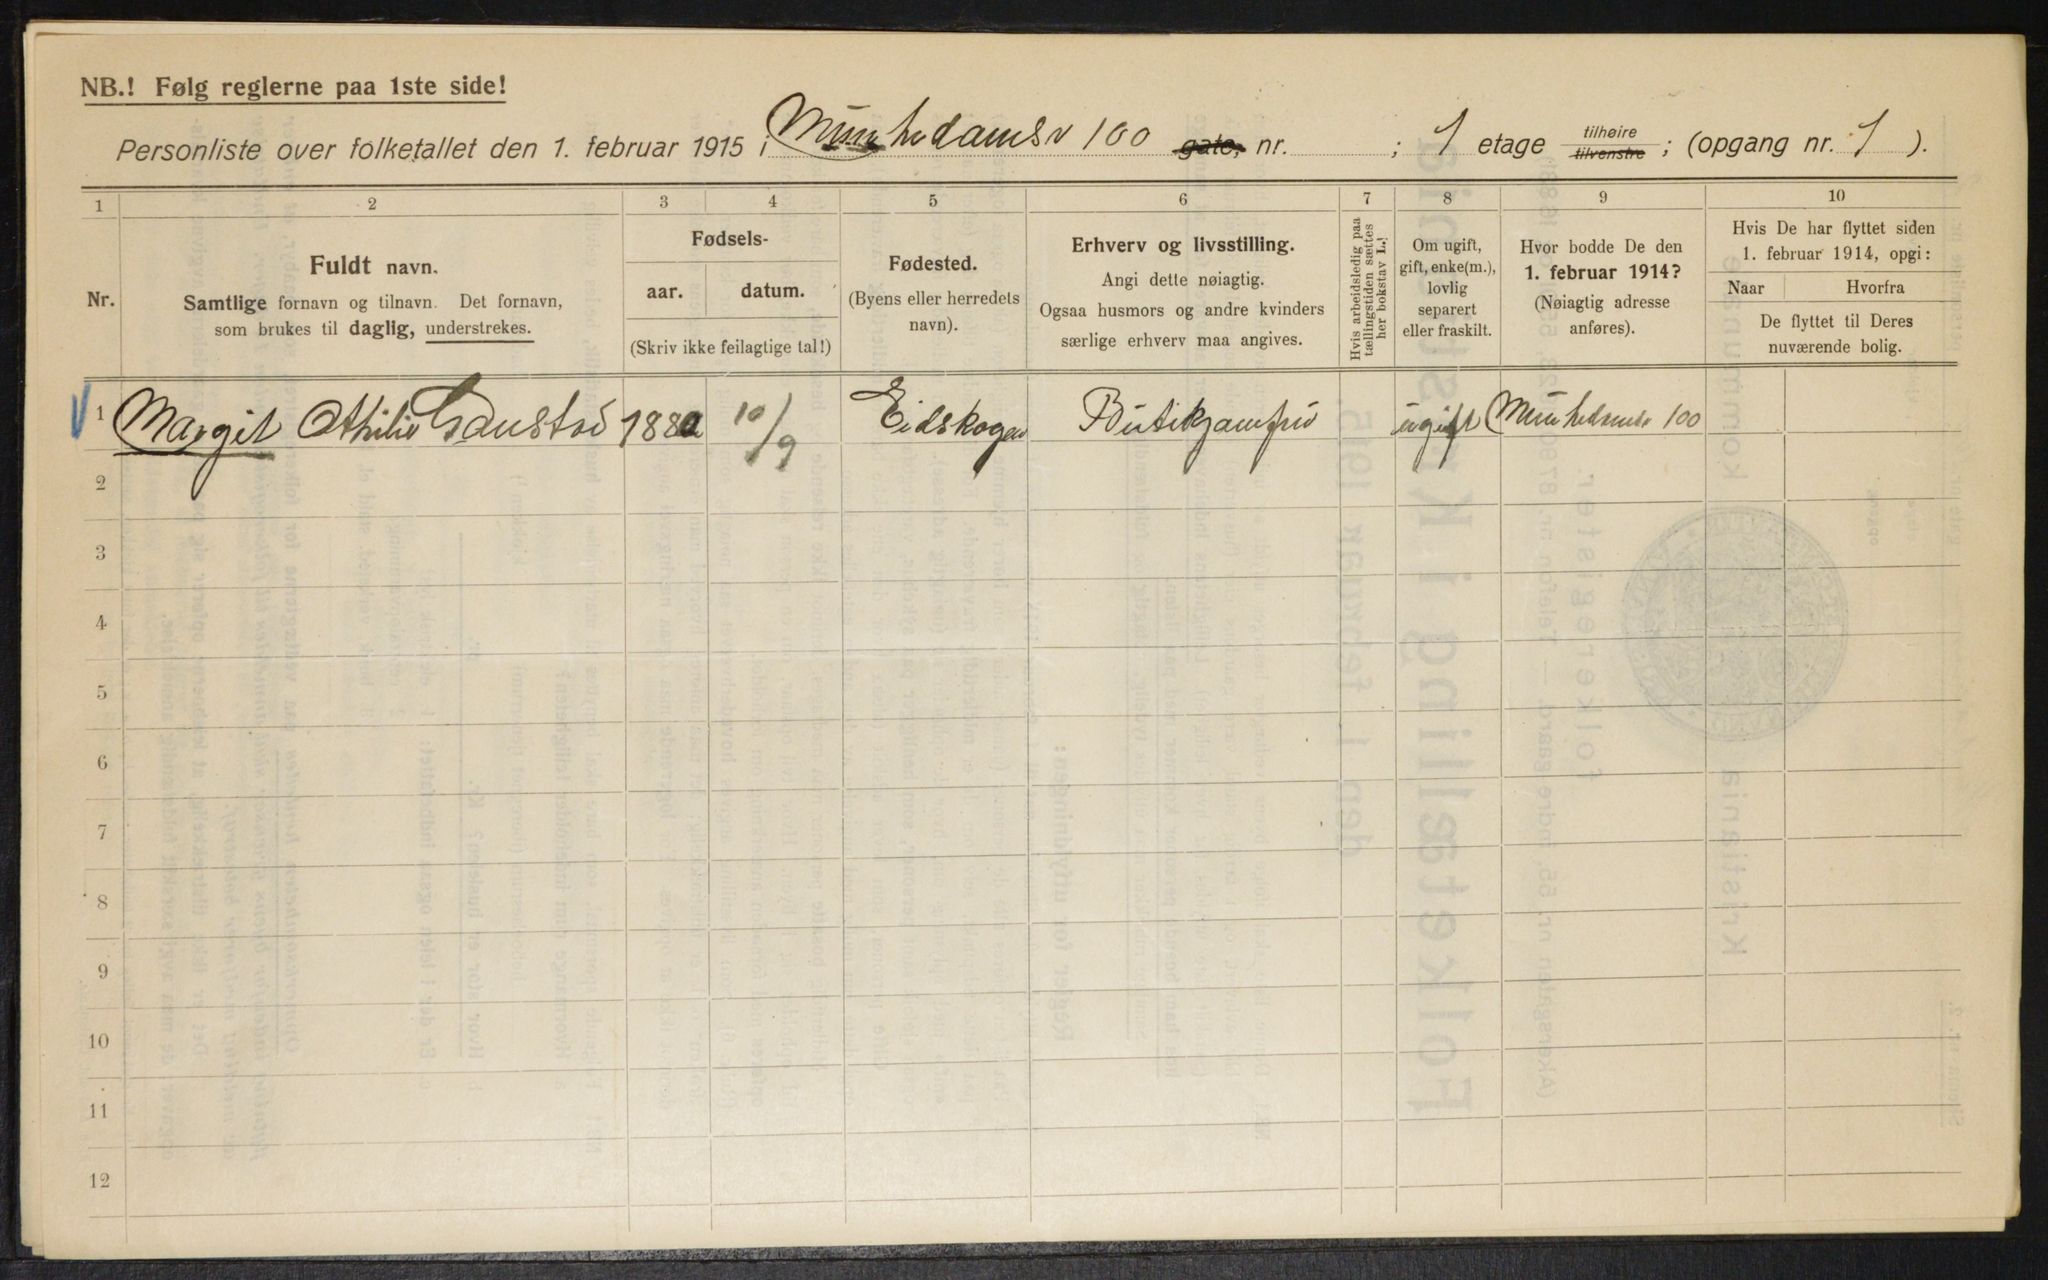 NB.! Følg reglerne paa 1ste side!
Personliste over folketallet den 1. februar 1915 i Munkedamsv 100 gate, nr. ; 1 etage tilhøire tilvenstre ; (opgang nr. 1 ).
1 2 3 4 5 6 7 8 9 10
Nr.
Fuldt navn.
Samtlige fornavn og tilnavn. Det fornavn,
som brukes til daglig, understrekes.
Fødsels-
aar. datum.
(Skriv ikke feilagtige tal!)
Fødested.
(Byens eller herredets
navn).
Erhverv og livsstilling.
Angi dette nøiagtig.
Ogsaa husmors og andre kvinders
særlige erhverv maa angives.
Hvis arbeidsledig paa
tællingstiden sættes
her bokstav L.!
Om ugift,
gift, enke(m.),
lovlig
separert
eller fraskilt.
Hvor bodde De den
1. februar 1914?
(Nøiagtig adresse
anføres).
Hvis De har flyttet siden
1. februar 1914, opgi:
Naar Hvorfra
De flyttet til Deres
nuværende bolig.
1 Margit Athilie 188 10/9 Eidskogen Butikjomfru ugift Munkedamsv 100
2
3
4
5
6
7
8
9
10
11
12